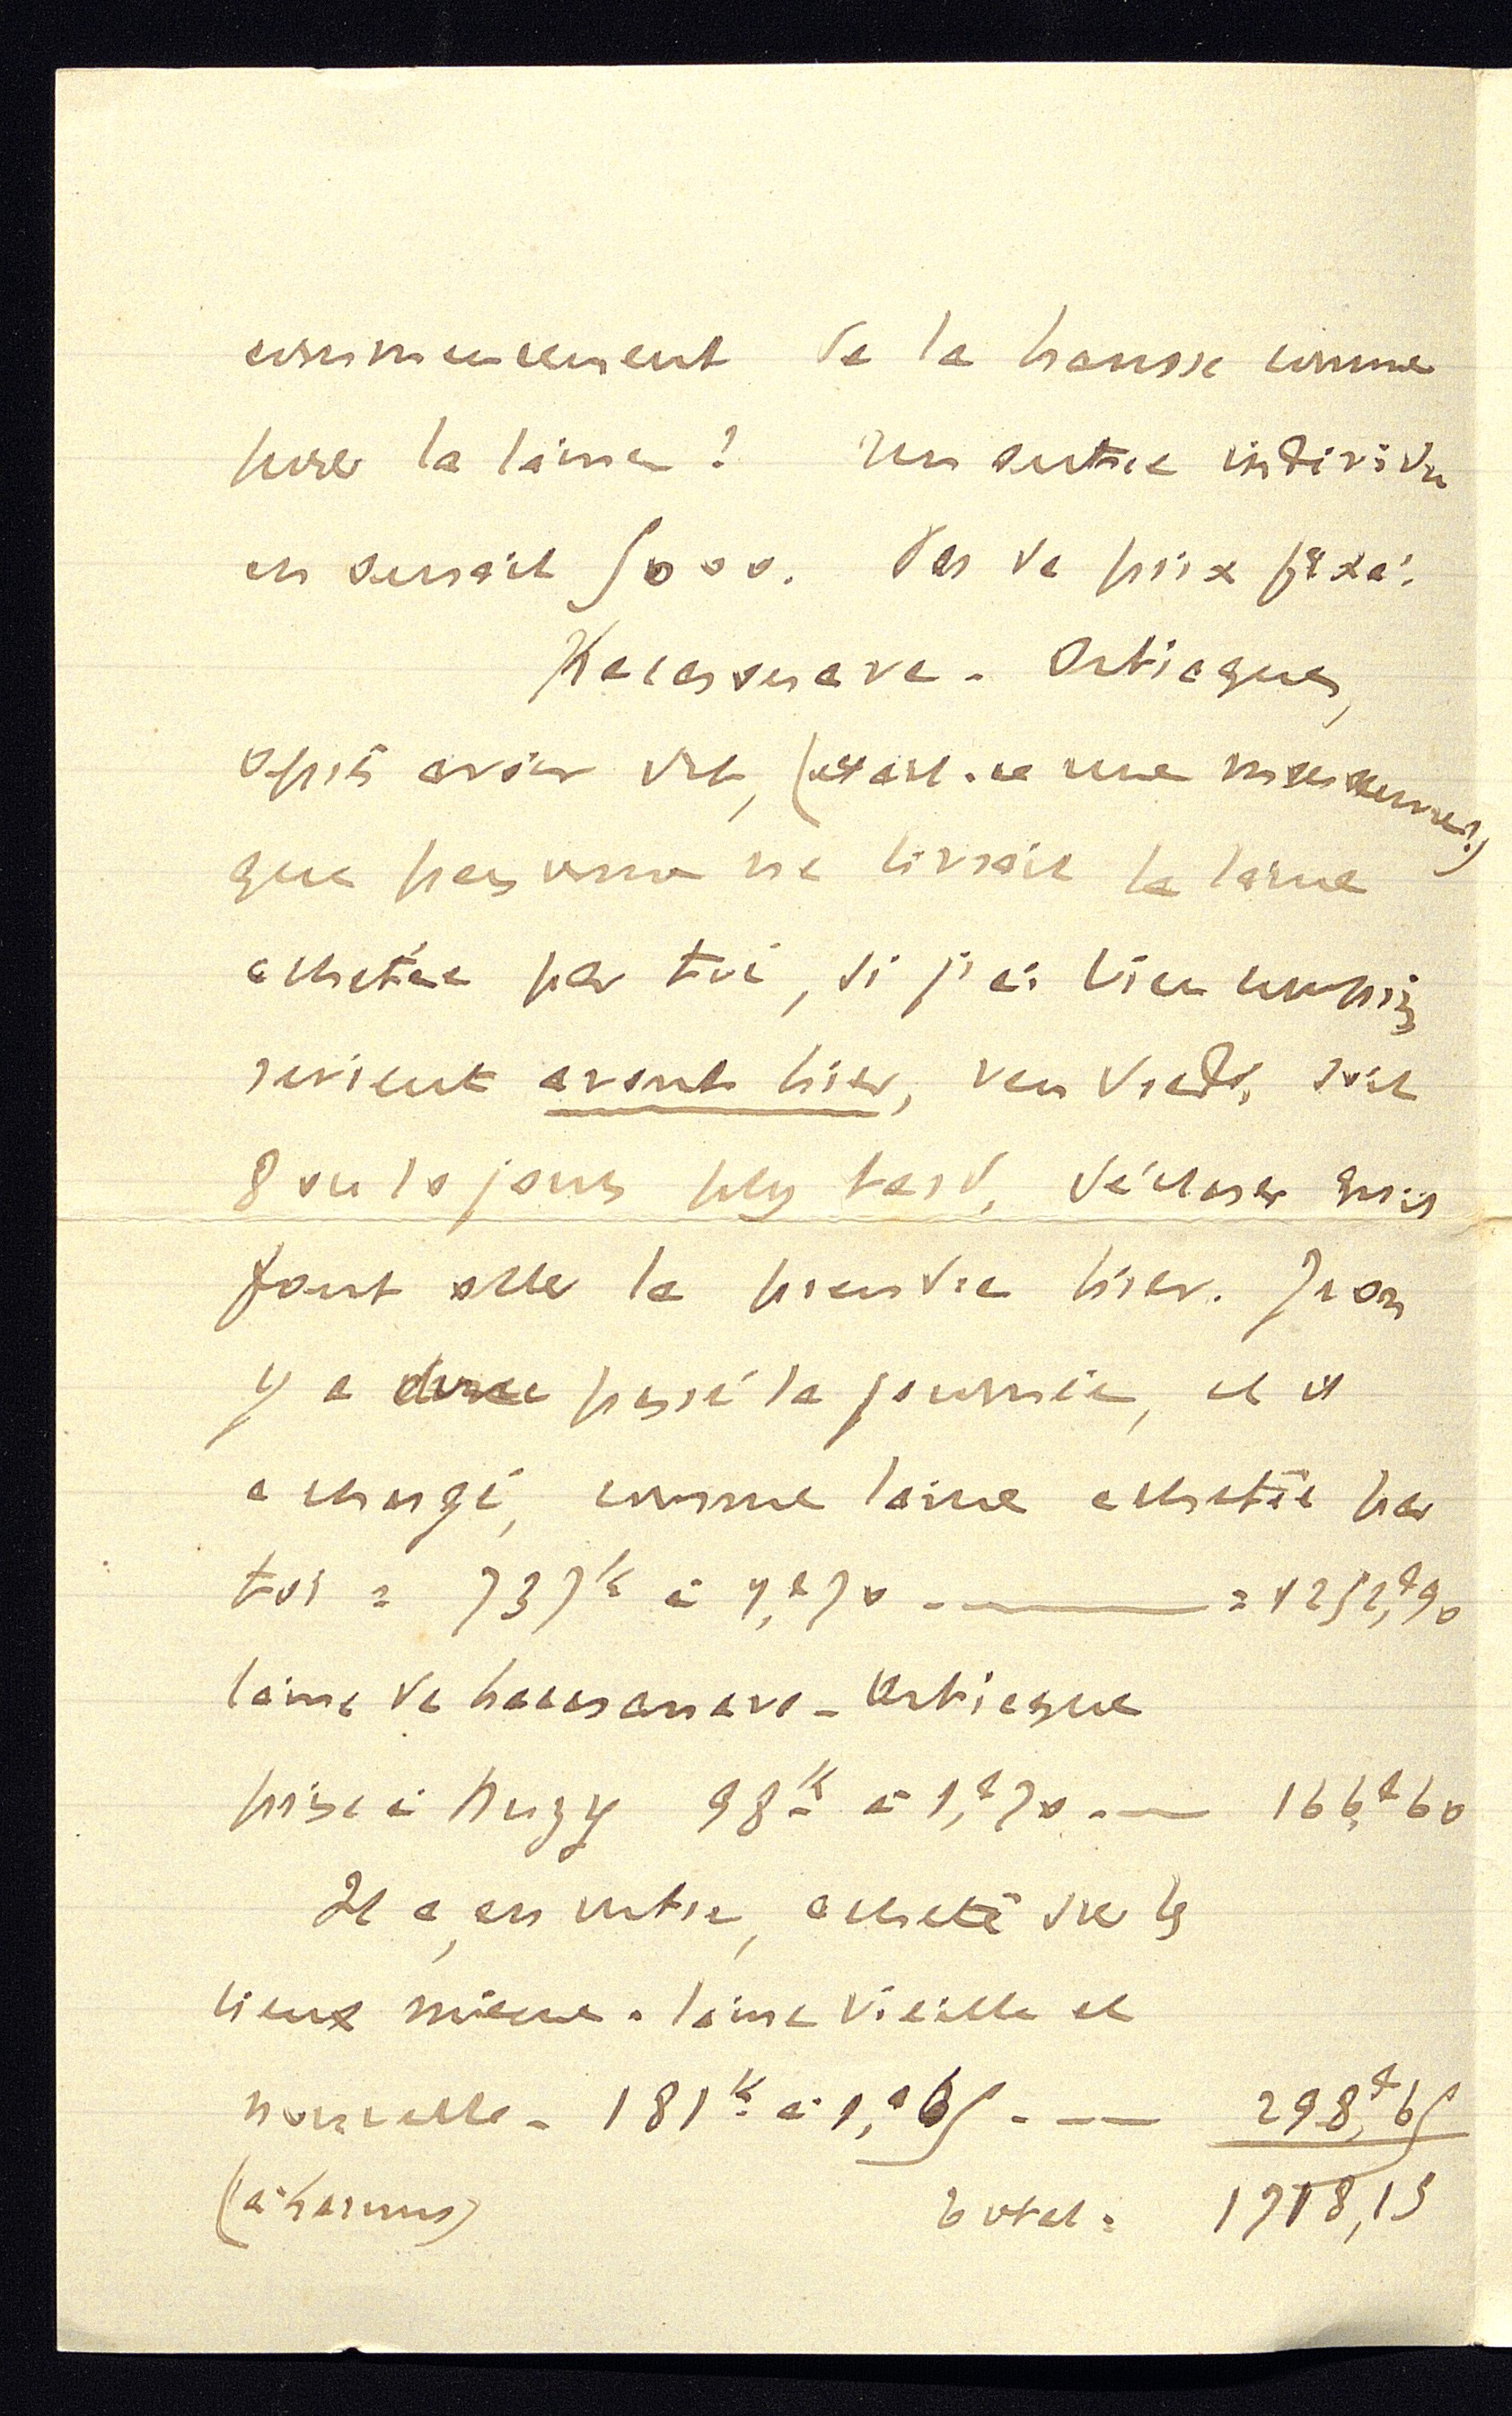 commencement de la hausse comme
pour la laine ? Un autre individu
en aurait 5000. Pas de prix fixé.
Hacasseneve. Ortiague,
après avoir dit, (était-ce une
que personne ne livrait la laine
achetée par toi, si j'ai bien compris
revient avant hier, vendredi, soit
8 ou 10 jours plus tard, déclarer qu'il
faut aller la prendre hier. Jean
y a donc passé la journée, et il
a chargé, comme laine achetée par
toi = 737k à 1,f70 - = 1252,f90
laine de - Ortiague
prise à Muzy 98k à 1,f70 - 166,f60
Il a, en outre, acheté sur les
lieux même - laine vieille et
nouvelle - 181k à 1,f65 - 298,f65
total = 1718,15